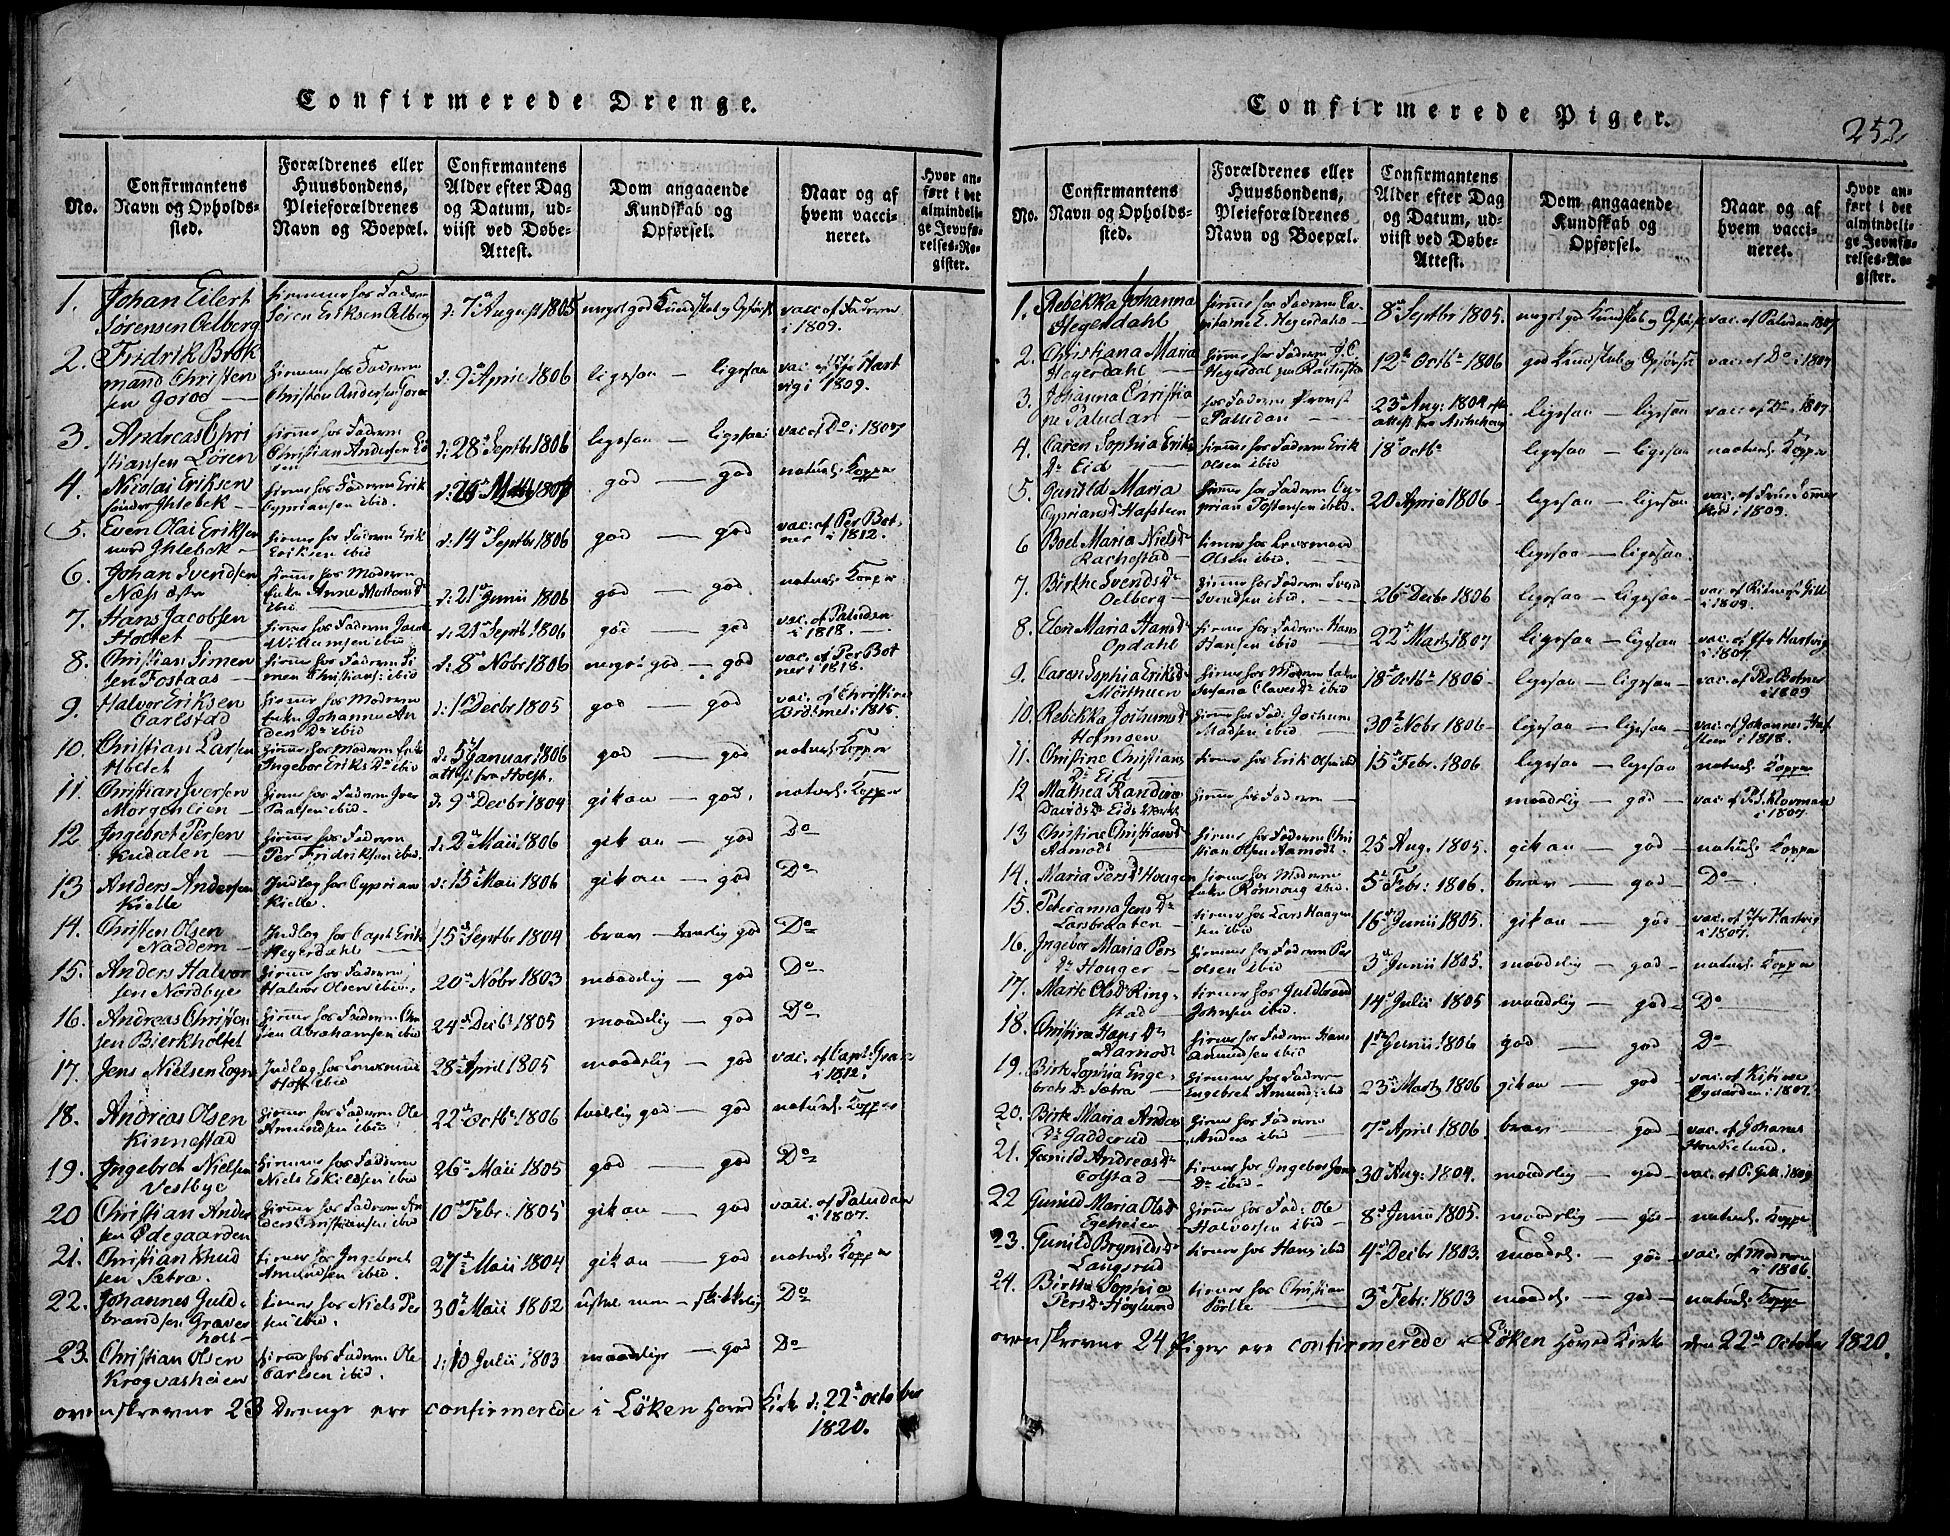 Confirmerede Drenge.
No.
Confirmantens
Navn og Opholds-
sted.
Forældrenes eller
Huusbondens,
Pleieforældrenes
Navn og Boepæl.
Confirmantens
Alder efter Dag
og Datum, ud-
viist ved Døbe-
Attest.
Dom angaaende
Kundskab og
Opførsel.
Naar og af
hvem vacci-
neret.
Hvor an-
ført i det
almindeli-
ge Jevnfø-
relses-Re-
gister.
1. Johan Eilert
Sørensen Oelberg
hiemme hos Faderen
Søren Eriksen Oelberg
d: 7de August 1805
meget god Kundskab og Opførsel
vac. af Faderen
i 1809.
2. Fridrik Brok
mand Christen
sen
hiemme hos Faderen
Christen Andersen
d: 9de April 1806
ligesaa — ligesaa
vac. af
i 1809.
3. Andreas Chri
stiansen Løren
hiemme hos Faderen
Christian Andersen Lø
ren
d: 28de Septbr 1806
ligesaa — ligesaa
vac. af Do i 1807
4. Nicolai Eriksen
søndre Ihlebek —
hiemme hos Faderen Erik
Cypriansen ibid.
god — god
naturl. Kopper
5. Even Olai Eriksen
nord Ihlebek —
hiemme hos Faderen Erik
Eriksen ibid
d: 14de Septbr 1806
god — god
vac. af Per Bot-
ner i 1812.
6. Johan Svendsen
Næss østre
hiemme hos Moderen
Enke Anne Mortens Dr
ibid
d: 21de Junii 1806
god — god
naturl. Kopper
7. Hans Jacobsen
Holtet
hiemme hos Faderen Jacob
Willumsen ibid
d: 21de Septbr 1806
god — god
vac. af Paludan
i 1818.
8. Christian Simen
sen Fostaas —
hiemme hos Faderen Si
men Christians: ibid
d: 8de Nobr 1806
meget god — god
vac. af Per Bot
ner i 1818.
9. Halvor Eriksen
Carlstad
hiemme hos Moderen
Enke Johanne An
ders Dr ibid
d: 1de Decbr 1805
god — god
vac. af Christine
i 1815.
10. Christian Larsen
Holtet
hiemme hos Moderen Enke
Ingebor Eriks Dr ibid
d: 5te Januar 1806
attest fra Holst.
god — god
naturl. Kopper
11. Christian Iversen
Morgenlien
hiemme hos Faderen Iver
Paalsen ibid.
d: 9de Decbr 1804
gik an — god.
naturl. Kopper
12. Ingebret Persen
Kudalen
hiemme hos Faderen
Per Fridriksen ibid.
d: 2de Maii 1806
gik an — god
Do
13. Anders Andersen
Kielle
Indlag hos Cyprian
Kielle.
d: 15de Maii 1806
gik an — god
Do
14. Christen Olsen
Naddem —
Indlag hos Capt. Erik
Hegerdahl
15de Septbr 1804
brav — god
Do
15. Anders Halvor
sen Nordbye
hiemme hos Faderen
Halvor Olsen ibid.
20de Nobr 1803
maadelig — god
Do
16. Andreas Christen
sen Bierkholtet
hiemme hos Faderen Chri
sten Abrahamsen ibid
24de Decbr 1805
maadelig — god
Do
17. Jens Nielsen Sogn
Indlag hos Lensmand
Hoff ibid
28de April 1805
maadelig — god
vac. af Capt:
i 1812.
18. Andreas Olsen
Kinnestad
hiemme hos Faderen Ole
Amundsen ibid.
22de Octbr 1806
god — god
naturl. Kopper
19. Ingebret Nielsen
Vestbye
hiemme hos Faderen
Niels Eskildsen ibid
26de Maii 1805
god — god
Do
20 Christian Ander
sen Ødegaarden
hiemme hos Faderen An
ders Christiansen ibid
10de Febr. 1805
gik an — god
vac. af Paludan
i 1807.
21. Christian Knud
sen Sætra.
tiener hos Ingebret
Amundsen ibid.
27de Maii 1804
gik an — god
naturl. Kopper
22. Johannes Guld-
brandsen Graver
holt
tiener hos Niels Per
sen ibid.
30de Maii 1802
— skikkelig
Do
23. Christian Olsen
Krogvasheien
hiemme hos Faderen Ole
Carlsen ibid.
d: 10 Julii 1803
maadelig — god
Do
ovenskrevne 23 Drenge ere confirmerede i Løken Hoved Kirk d: 22de October
1820.
Confirmerede Piger.
252
No.
Confirmantens
Navn og Opholds-
sted.
Forældrenes eller
Huusbondens,
Pleieforældrenes
Navn og Boepæl.
Confirmantens
Alder efter Dag
og Datum, ud-
viist ved Døbe-
Attest.
Dom angaaende
Kundskab og
Opførsel.
Naar og af
hvem vacci-
neret.
Hvor an-
ført i det
almindeli-
ge Jevnfø-
relses-Re-
gister.
1. Rebekka Johanna
Hegerdahl
hiemme hos Faderen Ca-
pitain E. Hegerdahl —
8de Septbr 1805.
meget god Kundskab og Opførsel
vac. af Paludan 1807
2. Christiana Maria
Heyerdahl —
hiemme hos Faderen J. C.
Heyerdal paa Rachestad
12te Octbr 1806
god Kundskab og Opførsel
vac. af Do i 1807
3. Johanna Christia
ne Paludan —
hos Faderen Provst
Paludan —
23de Aug: 1804 efter
attest fra Aschehoug
ligesaa — ligesaa
vac. af Do. 1807
4. Caren Sophia Eriks
Dr Eid —
hiemme hos Faderen Erik
Olsen ibid
18de Octbr
ligesaa — ligesaa
naturl. Kopper
5. Gunild Maria
Cyprians Dr Hafsteen
hiemme hos Faderen Cy-
prian Tostensen ibid.
20 April 1806 —
ligesaa — ligesaa
vac. af
i 1809.
6 Boel Maria Niels Dr
Rachestad —
tiener hos Lensmand
Olsen ibid —
ligesaa — ligesaa.
7. Birthe Svends Dr
Oelberg —
hiemme hos Faderen Svend
Svendsen ibid. —
26de Decbr 1806
ligesaa — ligesaa
vac. af
i 1809.
8. Eleni Maria Hans Dr
Opdahl
hiemme hos Faderen Hans
Hansen ibid
22de Marts 1807
ligesaa — ligesaa
vac. af Hr Hartvig
i 1807.
9. Caren Sophia Eriks Dr
hiemme hos Moderen Enke
Susana Claves Dr ibid
18de Octbr 1806
ligesaa — ligesaa
vac. af Per Botner
i 1809
10. Rebekka Jochums Dr
Homsen
hiemme hos Fad: Jochum
Madsen ibid
30te Nobr 1806
ligesaa — ligesaa
vac. af Johannes Haf
steen i 1818.
11. Christine Christians
Dr Eid
tiener hos Erik Olsen ibid
15de Febr. 1806
ligesaa — ligesaa
naturl. Kopper
12 Mathea Randine
Davids Dr Eids Værk
hiemme hos Faderen —
maadelig — god
i 1807.
13 Christine Christians Dr
Aamodt
hiemme hos Faderen Chri
stian Olsen Aamodt.
25 Aug. 1805.
gik an — god
naturl. Kopper
14. Maria Pers Dr Houger
hiemme hos Moderen
Enke Rønnoug ibid.
5te Febr. 1806.
brav — god
Do
15. Peterianna Jens Dr
Larsbraaten —
tiener hos Lars Haagen
sen ibid
16de Junii 1805.
gik an — god
vac. af Hr Hartvig
i 1807.
16. Ingebor Maria Pers
Dr Houger —
hiemme hos Faderen Per
Olsen ibid
3de Junii 1805.
maadelig — god
naturl. Kopper
17. Marte Ols Dr Ring-
stad
tiener hos Guldbrand
Johnsen ibid.
14de Julii 1805
maadelig — god
Do
18. Christina Hans Dr
Aarnodt
hiemme hos Faderen Hans
Amundsen ibid
1de Junii 1806
god — god
Do
19. Birte Sophia Enge-
brets Dr Sætra
hiemme hos Faderen
Engebret Amunds: ibid
23de Marts 1806
gik an — god
vac. af Kistine
Øgaarden i 1807.
20. Birte Maria Anders
Dr Gadderud
hiemme hos Faderen
Anders ibid
7de April 1806.
brav — god
vac. af Johanes
21. Gunild Andreas Dr
Tolstad —
tiener hos Ingebor Jens
Dr ibid —
30te Aug: 1804.
maadelig — god
vac. af P. Gill. 1809
22 Gunild Maria Ols Dr
Egeheien
hiemme hos Fad: Ole
Halvorsen ibid —
8de Junii 1805.
maadelig — god
naturl. Kopper
23. Gunild Brynilds Dr
Langsrud
tiener hos Hans ibid
4de Decbr 1803.
maadel. — god
vac. af Moderen
i 1806.
24. Birthe Sophia
Pers Dr Høglund
tiener hos Christian
3de Febr: 1803
maadel. — god
naturl. Kopper
ovenskrevne 24 Piger ere confirmerede i Løken Hoved Kirk den 22de October 1820.